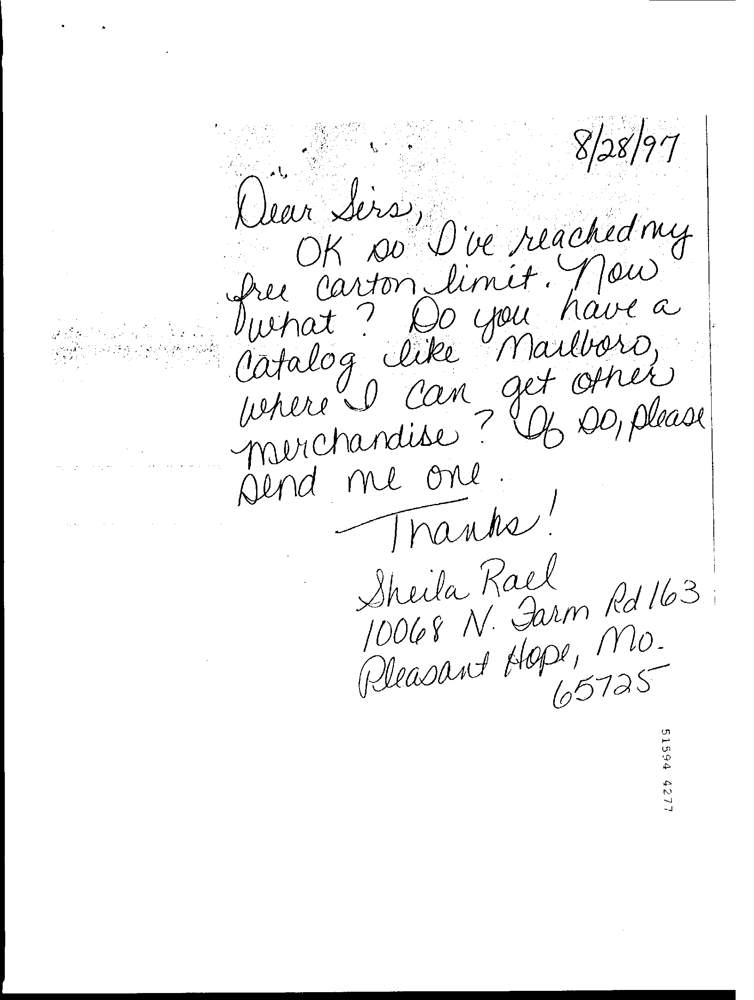 8/28/97
Dear Sirs,
OK so I've reached my
free carton limit. Now
what? Do you have a
catalog like Marlboro,
where I can get other
merchandise? If so, please
send me one.
Thanks!
Sheila Rael
10068 N. Farm Rd 163
Pleasant Hope, Mo.
65725
51594 4277